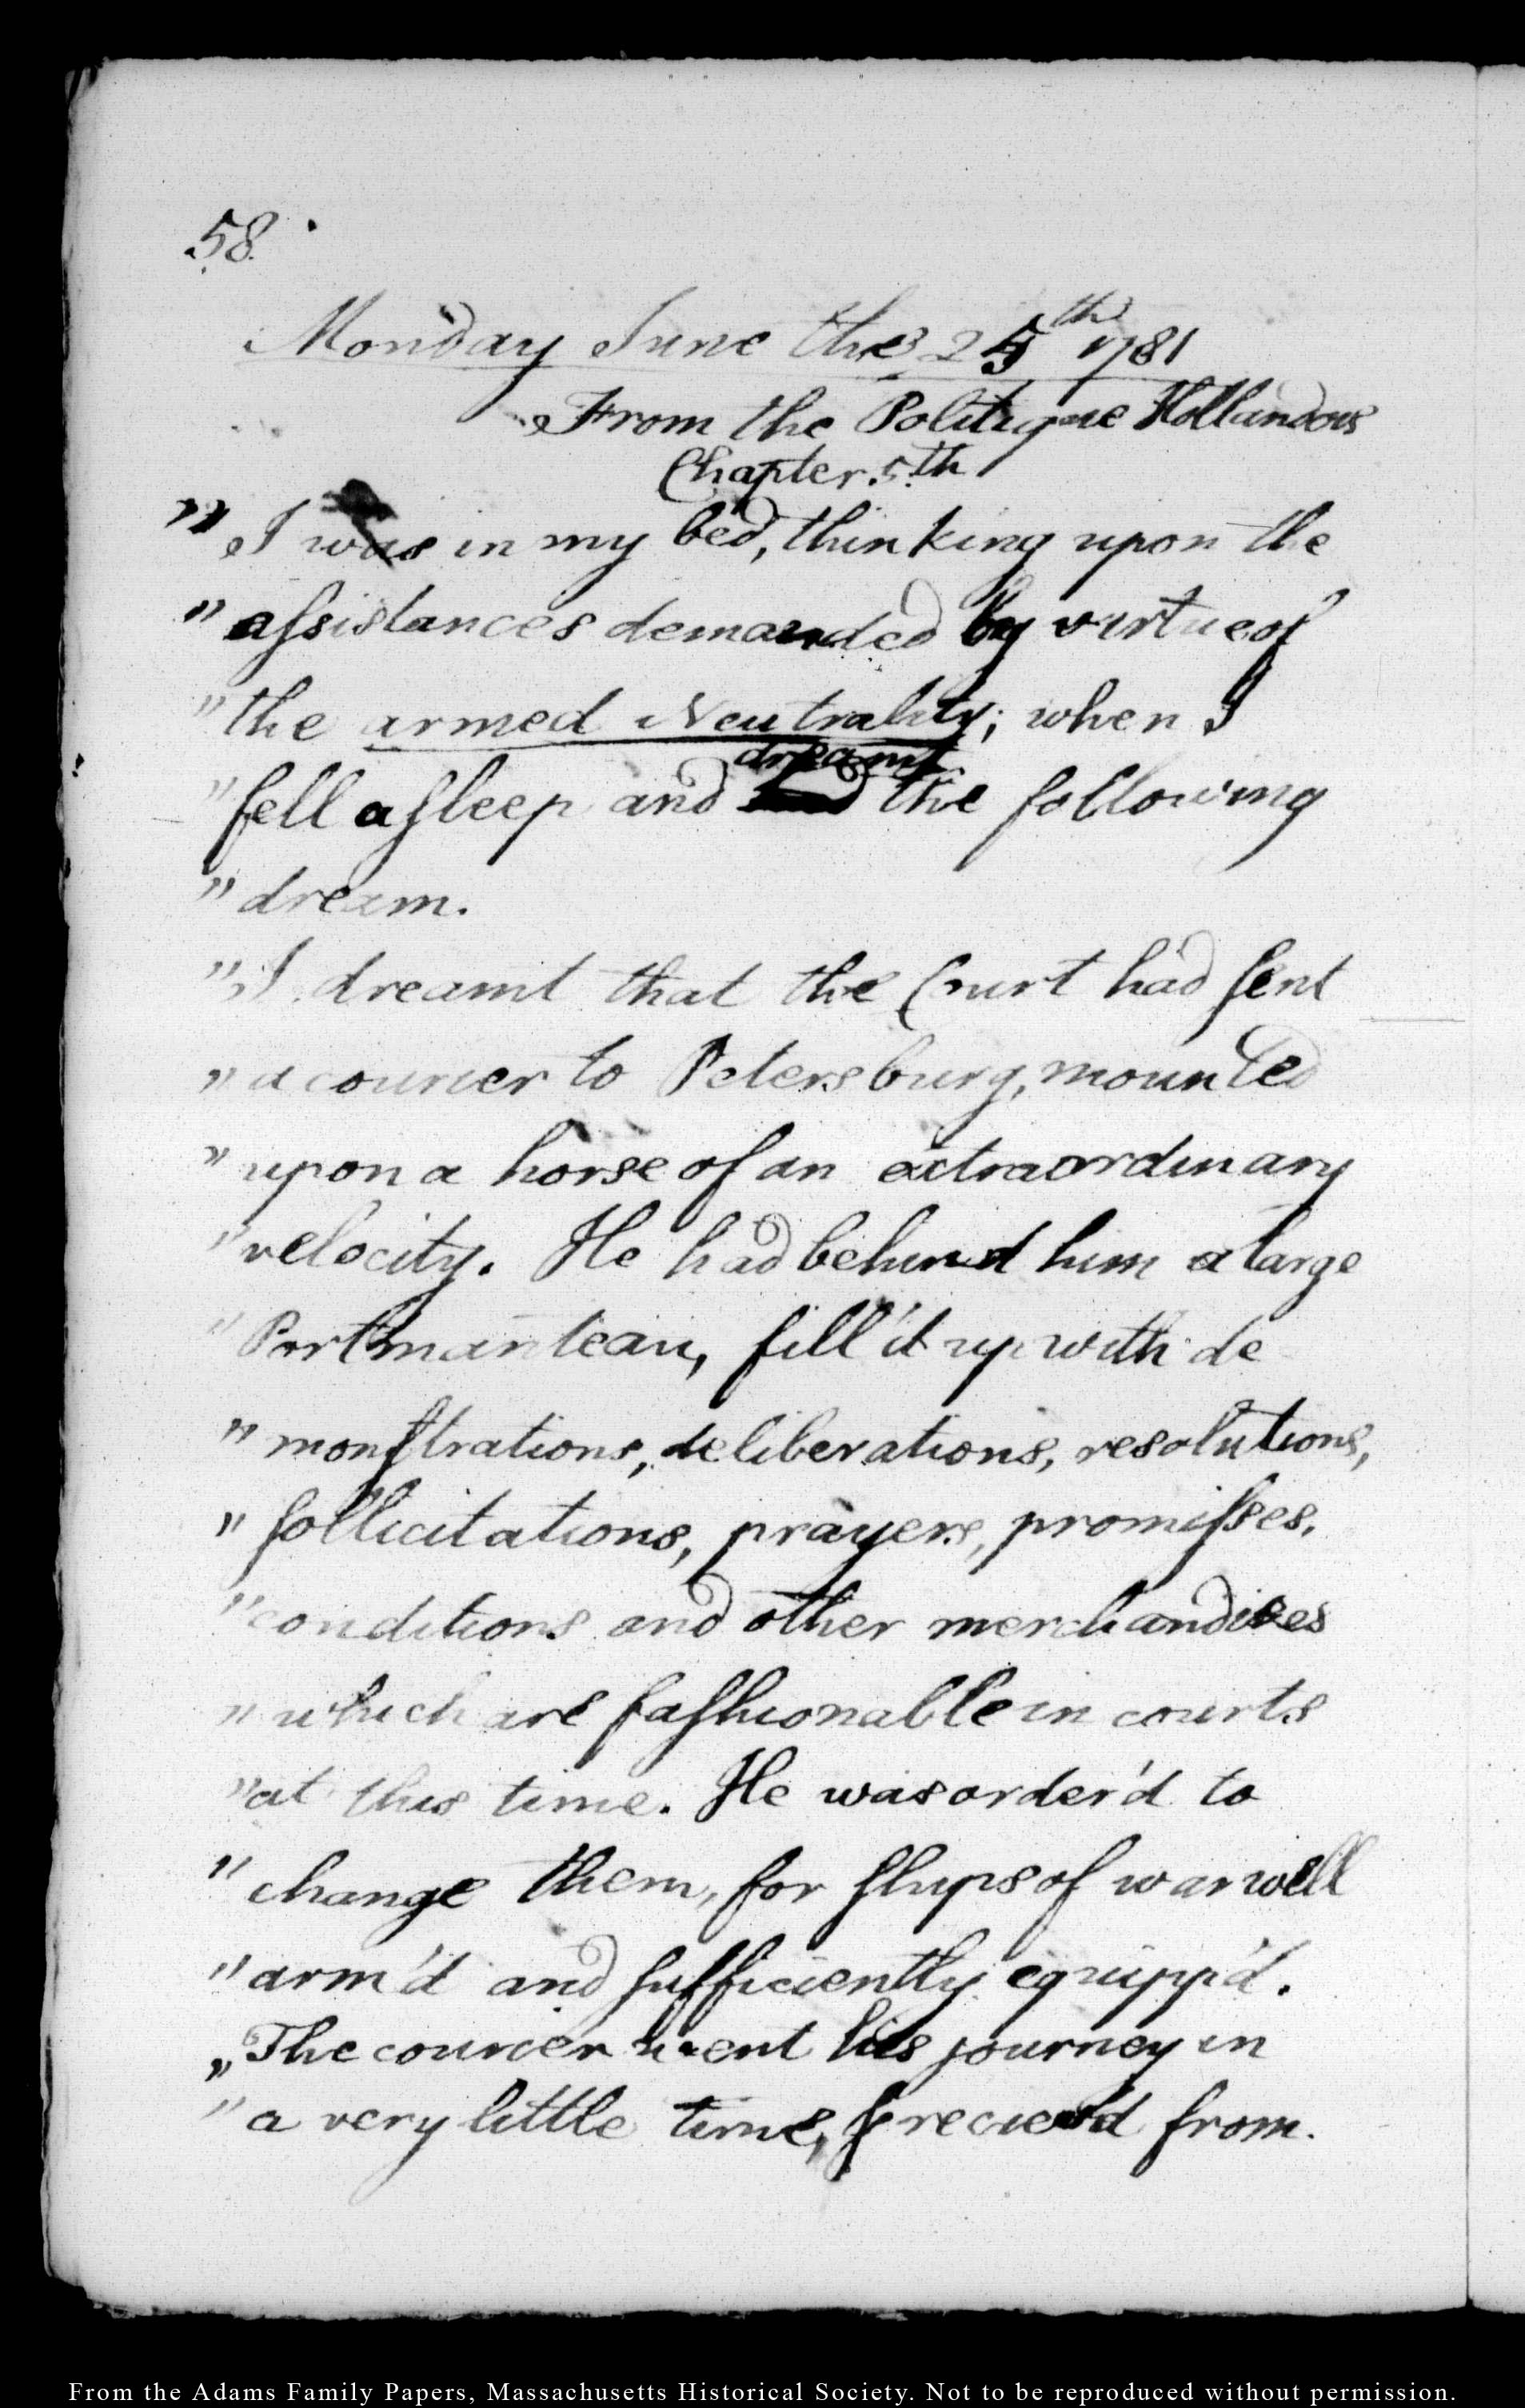 58.
Monday June the 25th 1781
From the Politique Hollandois
Chapter. 5.th
" I was in my bed, thinking upon the
" assistances demanded by virtue of
" the armed Neutrality; when I
dreamt
" fell asleep and the following
" dream.
" I dreamt that the Court had sent
" a courier to Petersburg, mounted
" upon a horse of an extraordinary
" velocity. He had behind him a large
" Portmanteau, fill'd up with de
" monstrations, deliberations, resolutions,
" sollicitations, prayers, promisses,
" conditions and other merchandises
" which are fashionable in courts
" at this time. He was order'd to
" change them, for ships of war well
" arm'd and sufficiently equipp'd.
" The courier went his journey in
" a very little time, from.
From the Adams Family Papers, Massachusetts Historical Society. Not to be reproduced without permission.